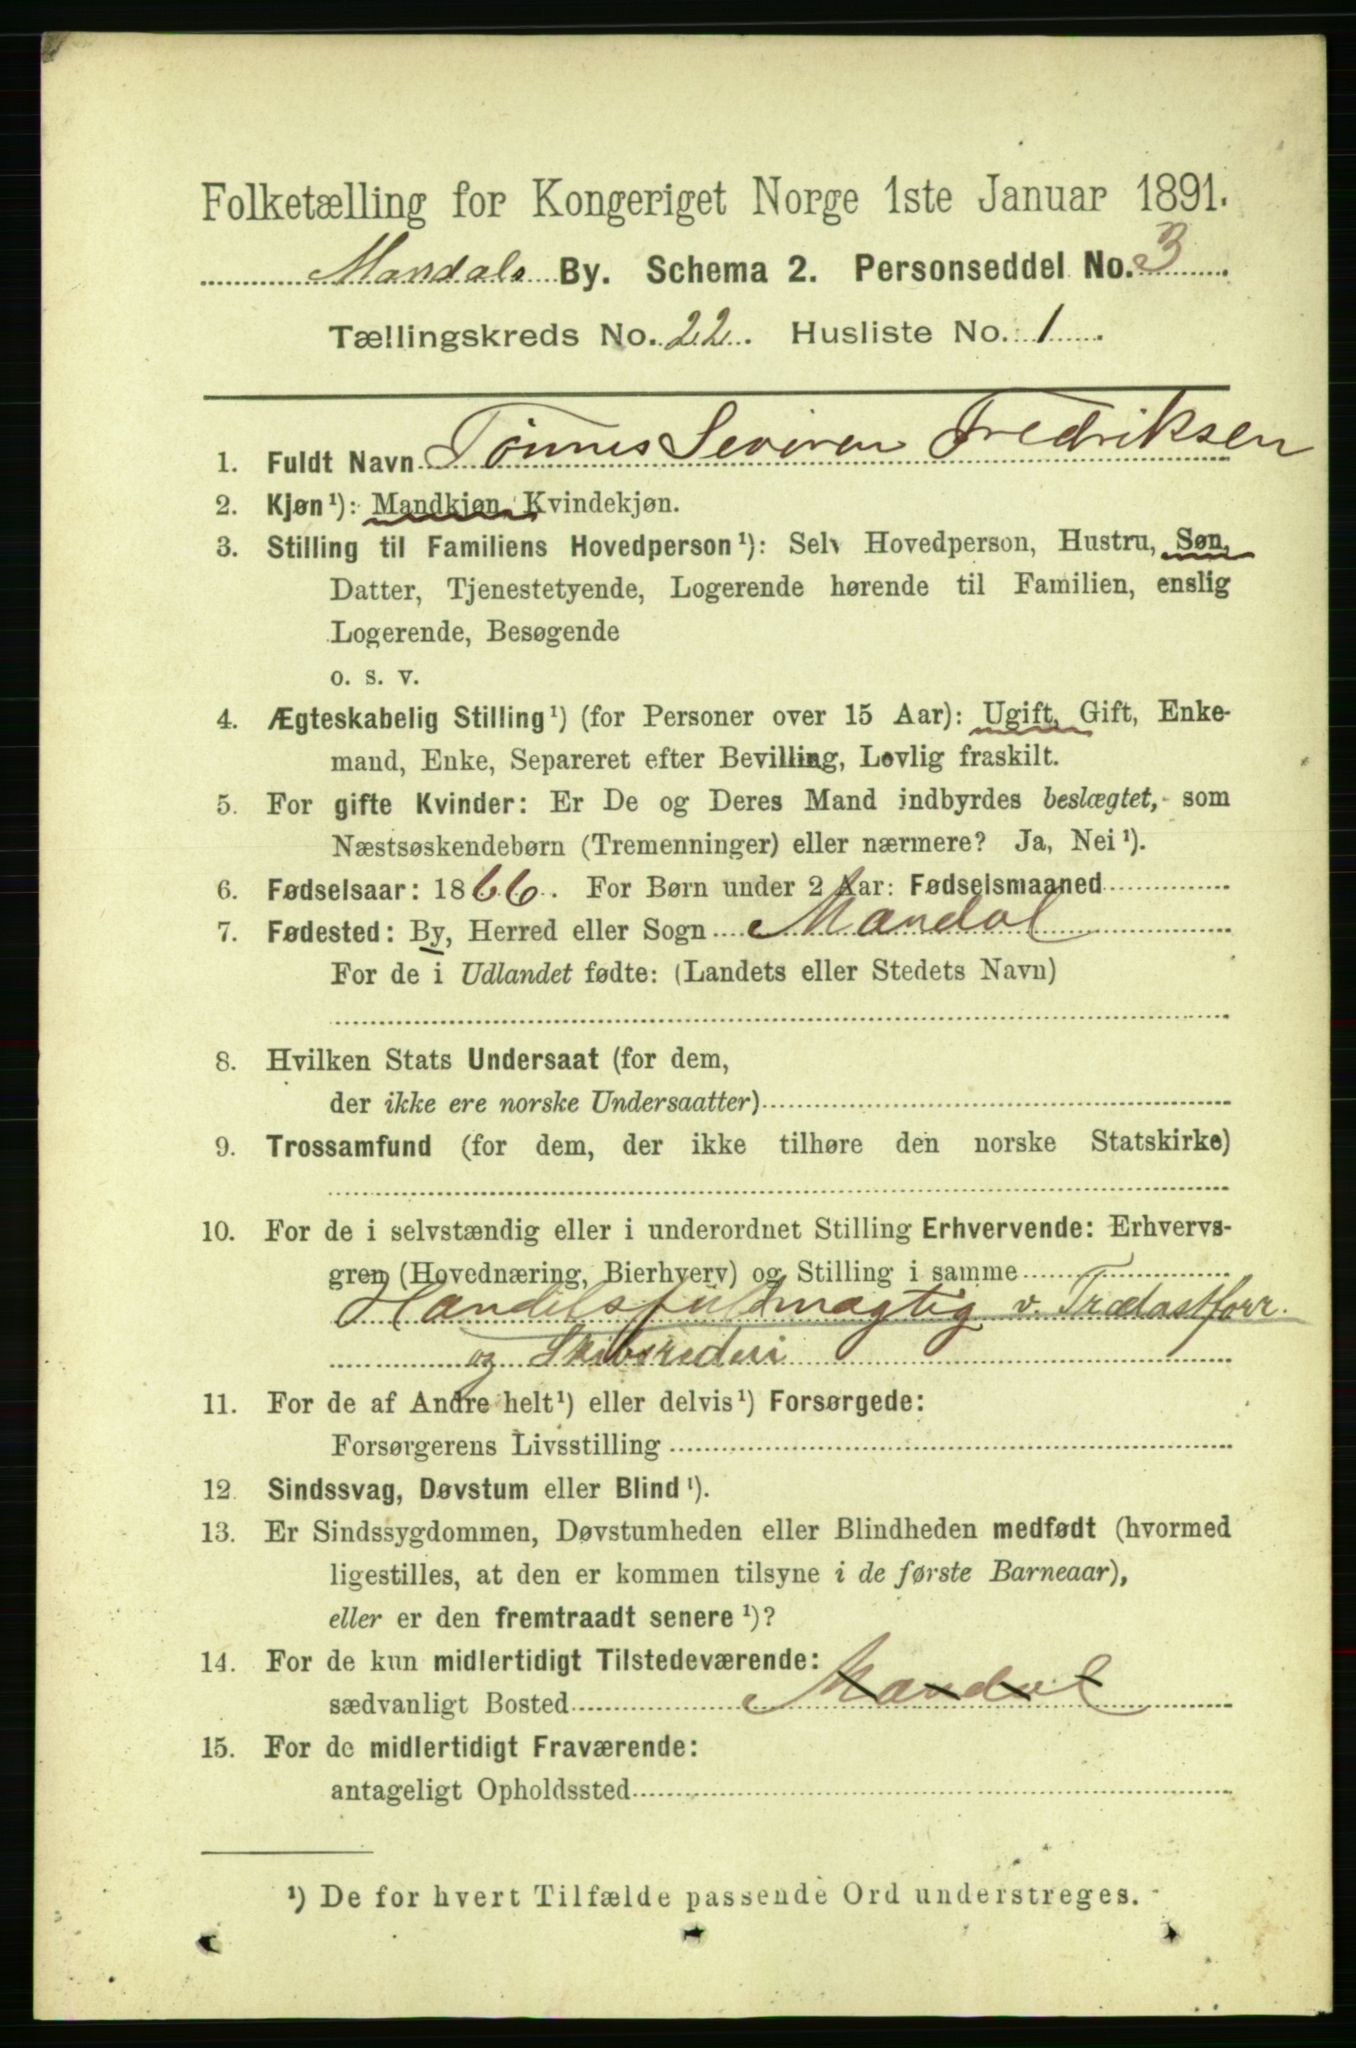 Folketælling for Kongeriget Norge 1ste Januar 1891.
Mandals By. Schema 2. Personseddel No. 3
Tællingskreds No. 22. Husliste No. 1.
1. Fuldt Navn Tönnes Severen Fredriksen
2. Kjøn¹): Mandkjøn, Kvindekjøn.
3. Stilling til Familiens Hovedperson¹): Selv Hovedperson, Hustru, Søn,
Datter, Tjenestetyende, Logerende hørende til Familien, enslig
Logerende, Besøgende
o. s. v.
4. Ægteskabelig Stilling¹) (for Personer over 15 Aar): Ugift, Gift, Enke-
mand, Enke, Separeret efter Bevilling, Lovlig fraskilt.
5. For gifte Kvinder: Er De og Deres Mand indbyrdes beslægtet, som
Næstsøskendebørn (Tremenninger) eller nærmere? Ja, Nei¹).
6. Fødselsaar: 1866. For Børn under 2 Aar: Fødselsmaaned
7. Fødested: By, Herred eller Sogn Mandal
For de i Udlandet fødte: (Landets eller Stedets Navn)
8. Hvilken Stats Undersaat (for dem,
der ikke ere norske Undersaatter)
9. Trossamfund (for dem, der ikke tilhøre den norske Statskirke)
10. For de i selvstændig eller i underordnet Stilling Erhvervende: Erhvervs-
gren (Hovednæring, Bierhverv) og Stilling i samme
Handelsfuldmægtig v. Trælastforr.
og Skibsrederi
11. For de af Andre helt¹) eller delvis¹) Forsørgede:
Forsørgerens Livsstilling
12. Sindssvag, Døvstum eller Blind¹).
13. Er Sindssygdommen, Døvstumheden eller Blindheden medfødt (hvormed
ligestilles, at den er kommen tilsyne i de første Barneaar),
eller er den fremtraadt senere¹)?
14. For de kun midlertidigt Tilstedeværende:
sædvanligt Bosted Mandal
15. For de midlertidigt Fraværende:
antageligt Opholdssted
¹) De for hvert Tilfælde passende Ord understreges.